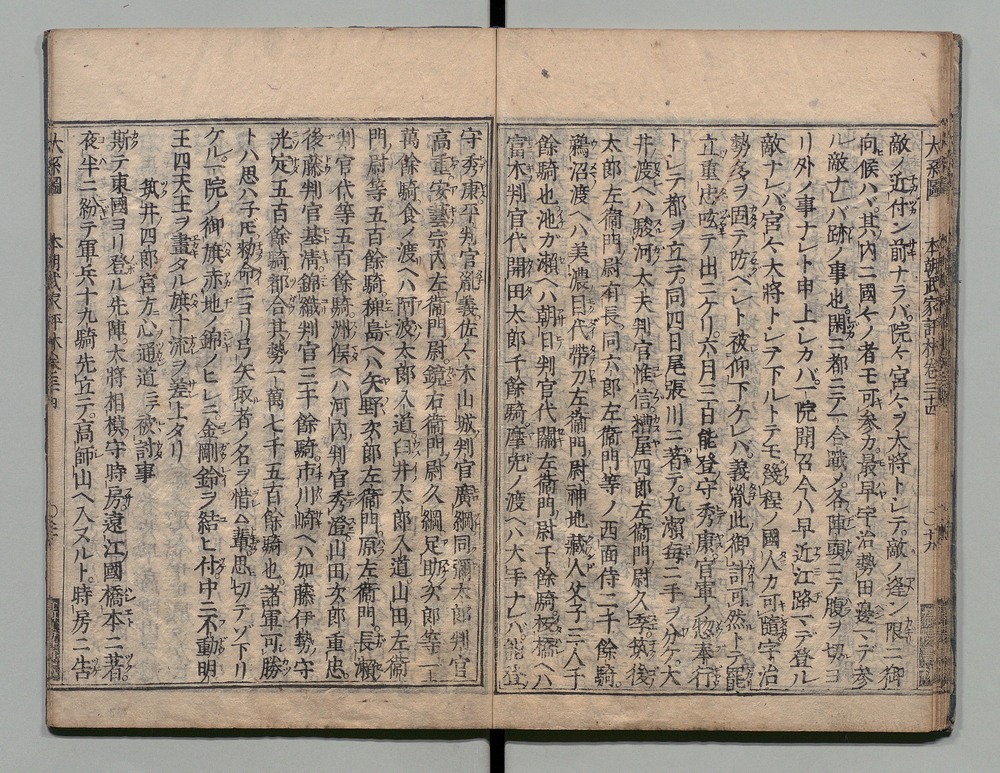 大系圖 本朝武家評林卷三十四 ○十八
敵ノ近付ン前ナラバ院々宮々ヲ大將トシテ敵ノ逢ン限ニ御
向候ハバ其内ニ國々ノ者モ可參カ最早宇治勢田邊マデ參
ル敵ナレバ跡ノ事也閑ニ都ニテ一合戰シ各陣頭ニテ腹ヲ切ヨ
リ外ノ事ナシト申上シカバ一院聞召今ハ早近江路マデ登ル
敵ナレバ宮々大將トシテ下ルトテモ幾程ノ國人カ可隨宇治
勢多ヲ固テ防ベシト被仰下ケレバ義胤此御計可然トテ
立重忠呟テ出ニケリ六月三日能登守秀康官軍ノ惣奉行
トシテ都ヲ立テ同四日尾張川ニ著テ九瀬毎ニ手ヲワケ大
井渡ヘハ駿河太夫判官惟信糟屋四郎左衞門尉久季筑後
太郎左衞門尉有長同六郎左衞門等ノ西面侍二千餘騎
鵜沼渡ヘハ美濃目代帶刀左衞門尉神地藏人父子三人千
餘騎也池ガ瀬ヘハ朝日判官代關左衞門尉千餘騎板橋ヘハ
富木判官代開田太郎千餘騎摩免ノ渡ヘハ大手ナレバ能登
守秀康平判官胤義佐々木山城判官廣綱同彌太郎判官
高重安藝宗内左衞門尉鏡右衞門尉久綱足助次郎等一
萬餘騎食ノ渡ヘハ阿波太郎入道臼井太郎入道山田左衞
門尉等五百餘騎稗島ヘハ矢野次郎左衞門原左衞門長瀬
判官代等五百餘騎洲俣ヘハ河内判官秀澄山田次郎重忠
後藤判官基清錦織判官三千餘騎市川崎ヘハ加藤伊勢守
光定五百餘騎都合其勢一萬七千五百餘騎也諸軍可勝
トハ思ハ子ドモ勅命ニヨリ弓矢取者ノ名ヲ惜ム輩思切テゾ下リ
ケル一院ノ御旗赤地ノ錦ノヒレニ金剛鈴ヲ結ヒ付中ニ不動明
王四天王ヲ畫タル旗十流ヲ差下タリ
筑井四郎宮方心通道ニテ被討事
斯テ東國ヨリ登ル先陣大將相模守時房遠江國橋本ニ著
夜半ニ紛テ軍兵十九騎先立テ高師山ヘ入ヌルト時房ニ告
大系圖 本朝武家評林卷三十四